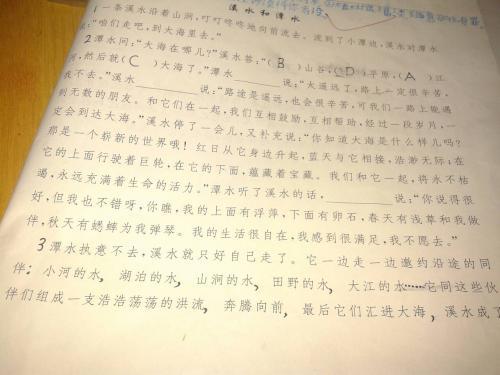 溪水和潭水
1一条溪水沿着山涧,叮叮咚咚地向前流去。流到了小潭边,溪水对潭水
说:“咱们走吧,到大海里去。”
2潭水问:“大海在哪儿?”溪水答:“( B )山谷,( D )平原,( A )江
河,然后就( C )大海了。”潭水________说:“太遥远了,路上一定很辛苦。
我不去。”溪水________说:“路途是遥远,也会很辛苦,可我们一路上能遇
到无数的朋友。和它们在一起,我们互相鼓励,互相帮助,经过一段岁月,一
定会到达大海。”溪水停了一会儿,又补充说:“你知道大海是什么样儿吗?
那是一个崭新的世界哦!红日从它身边升起,蓝天与它相接,浩渺无际;在
它的上面行驶着巨轮,在它的下面,蕴藏着宝藏。我们和它一起,将永不枯
竭,永远充满着生命的活力。”潭水听了溪水的话,________说:“你说得很
好,但我也不错呀,你瞧,我的上面有浮萍,下面有卵石,春天有浅草和我做
伴,秋天有蟋蟀为我弹琴。我的生活很自在,我感到很满足,我不愿去。”
3潭水执意不去,溪水就只好自己走了。它一边走一边邀约沿途的同
伴:小河的水,湖泊的水,山涧的水,田野的水,大江的水……它同这些伙
伴们组成一支浩浩荡荡的洪流,奔腾向前,最后它们汇进大海,溪水成了